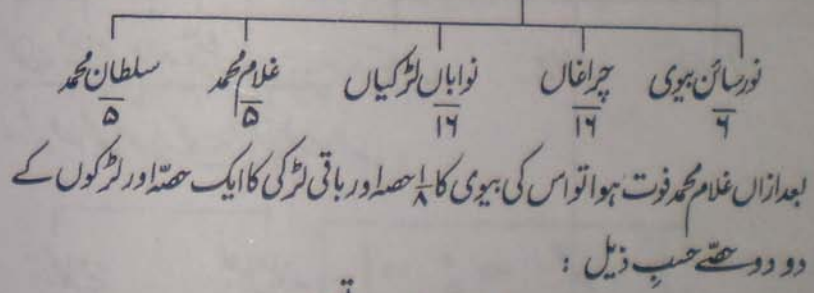 نورسائن بیوی چراغاں نواباں لڑکیاں غلام محمد سلطان محمد
۶ ۱۶ ۱۶ ۵ ۵
بعد ازاں غلام محمد فوت ہوا تو اس کی بیوی کا ۱/۸ حصہ اور باقی لڑکی کا ایک حصّہ اور لڑکوں کے
دو دو حصّے حسبِ ذیل :